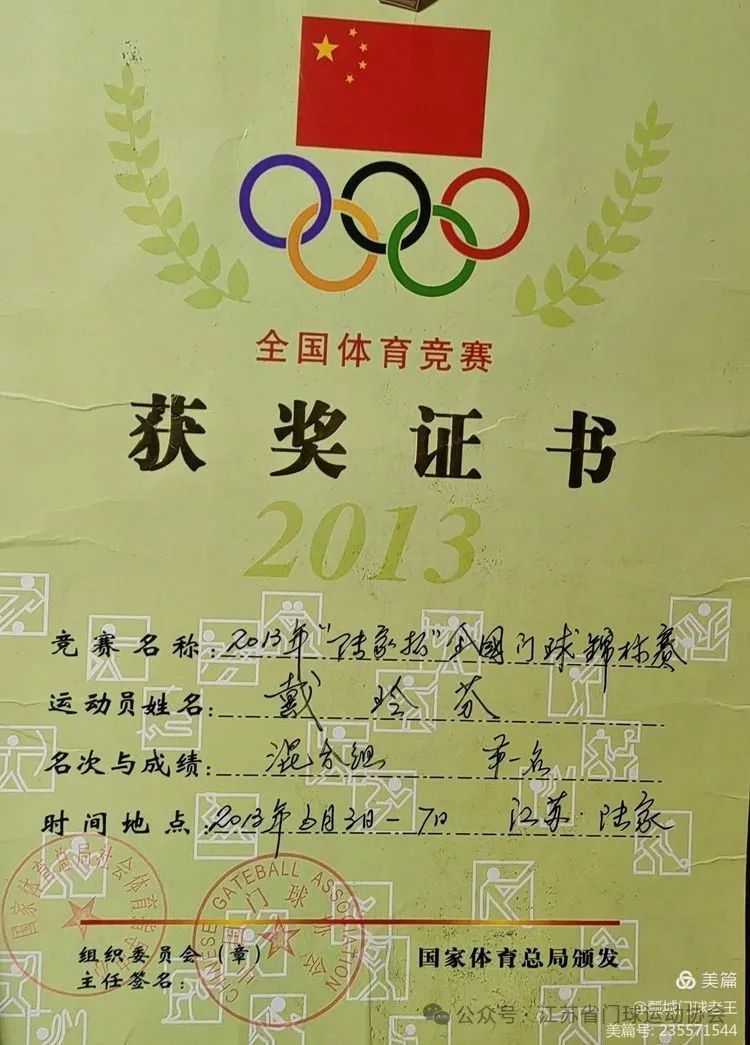 全国体育竞赛
获奖证书
2013
竞赛名称:2013年"陆家杯"全國门球锦标赛
运动员姓名:戴玲芬
名次与成绩:混合组 第一名
时间地点:2013年5月3日-7日 江苏 陆家
国家体育总局社会体育
CHINESE GATEBALL ASSOCIATION
中国门球协会
组织委员会(章)
主任签名:
国家体育总局颁发
美篇
@瓢城门球老王
公众号·江苏省门球运动协会
美篇号:235571544